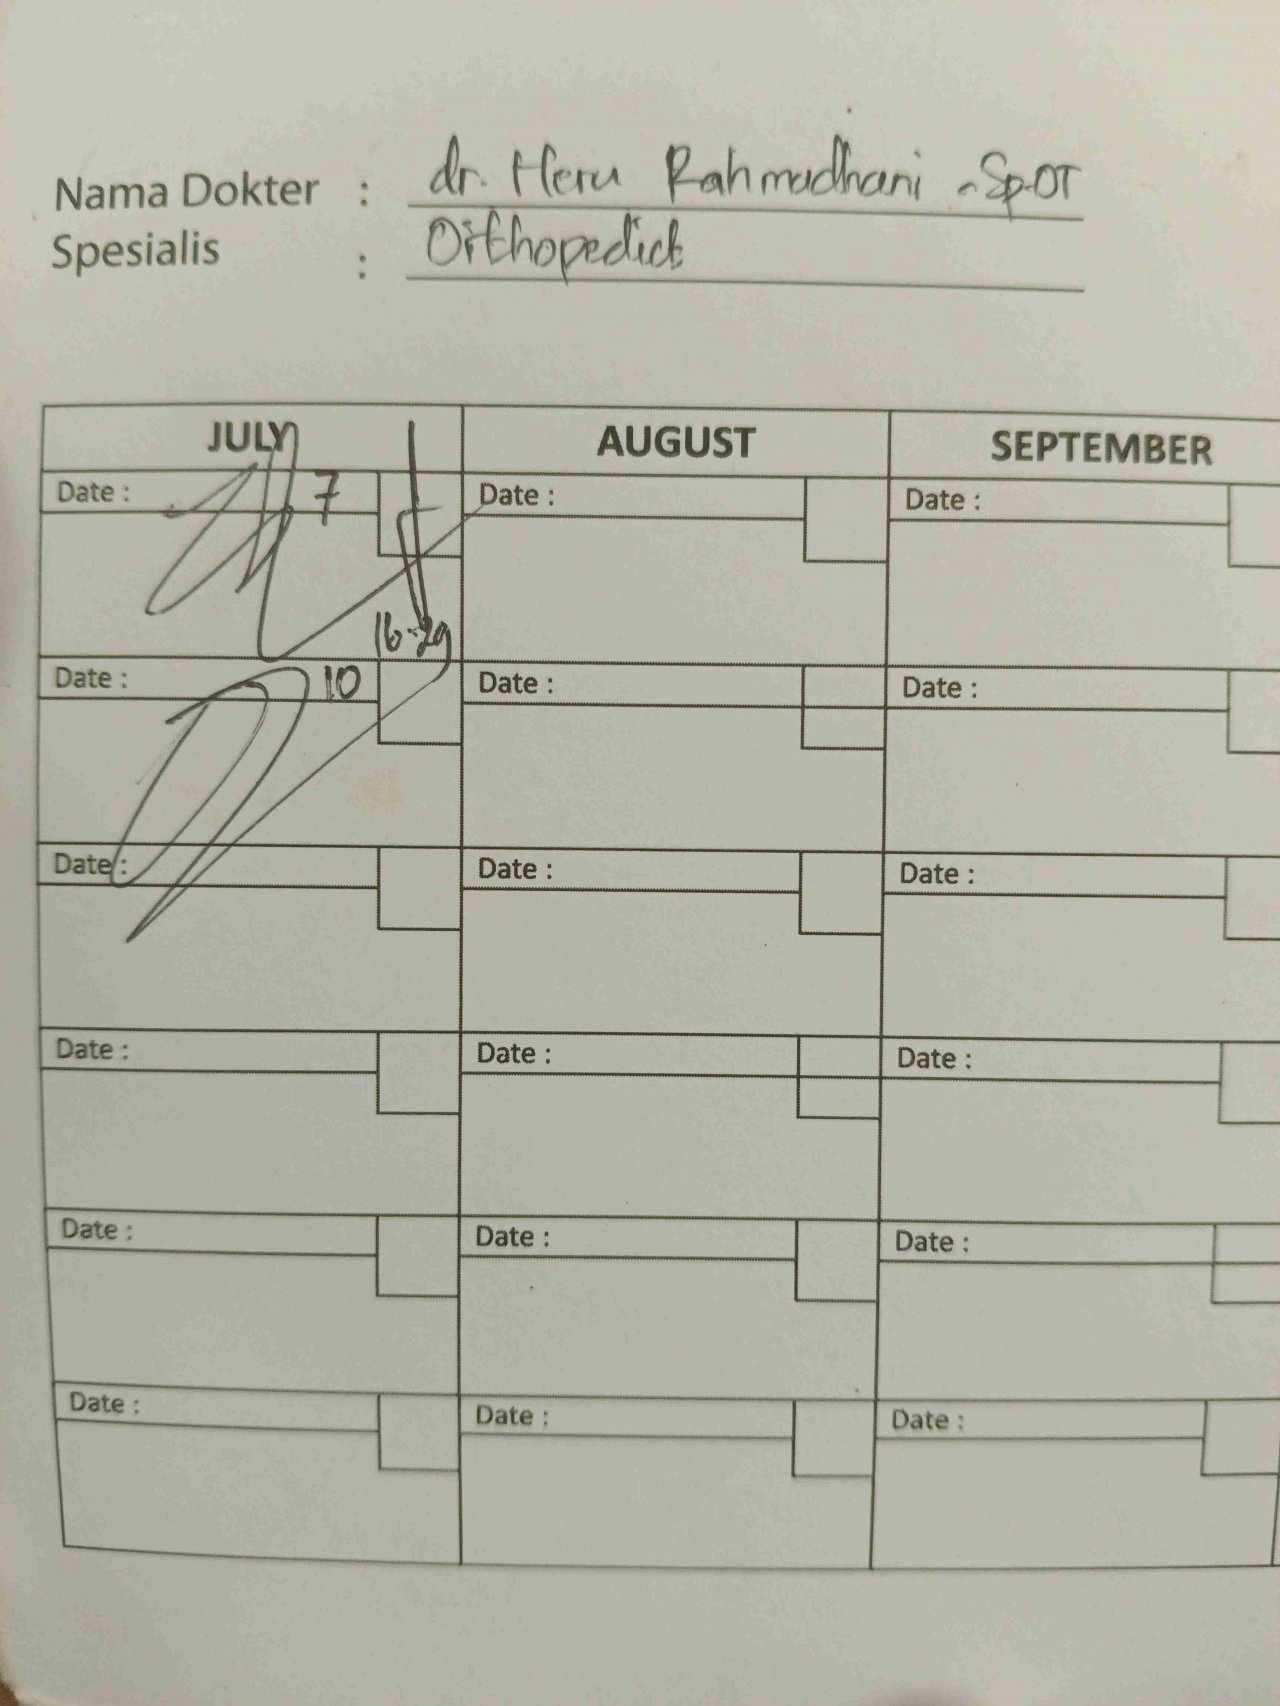 Nama Dokter : dr. Heru Rahmadhani - Sp.OT
Spesialis : Orthopedick
JULY AUGUST SEPTEMBER
Date : 7 Date : Date :
16-29
Date : 10 Date : Date :
Date : Date : Date :
Date : Date : Date :
Date : Date : Date :
Date : Date : Date :